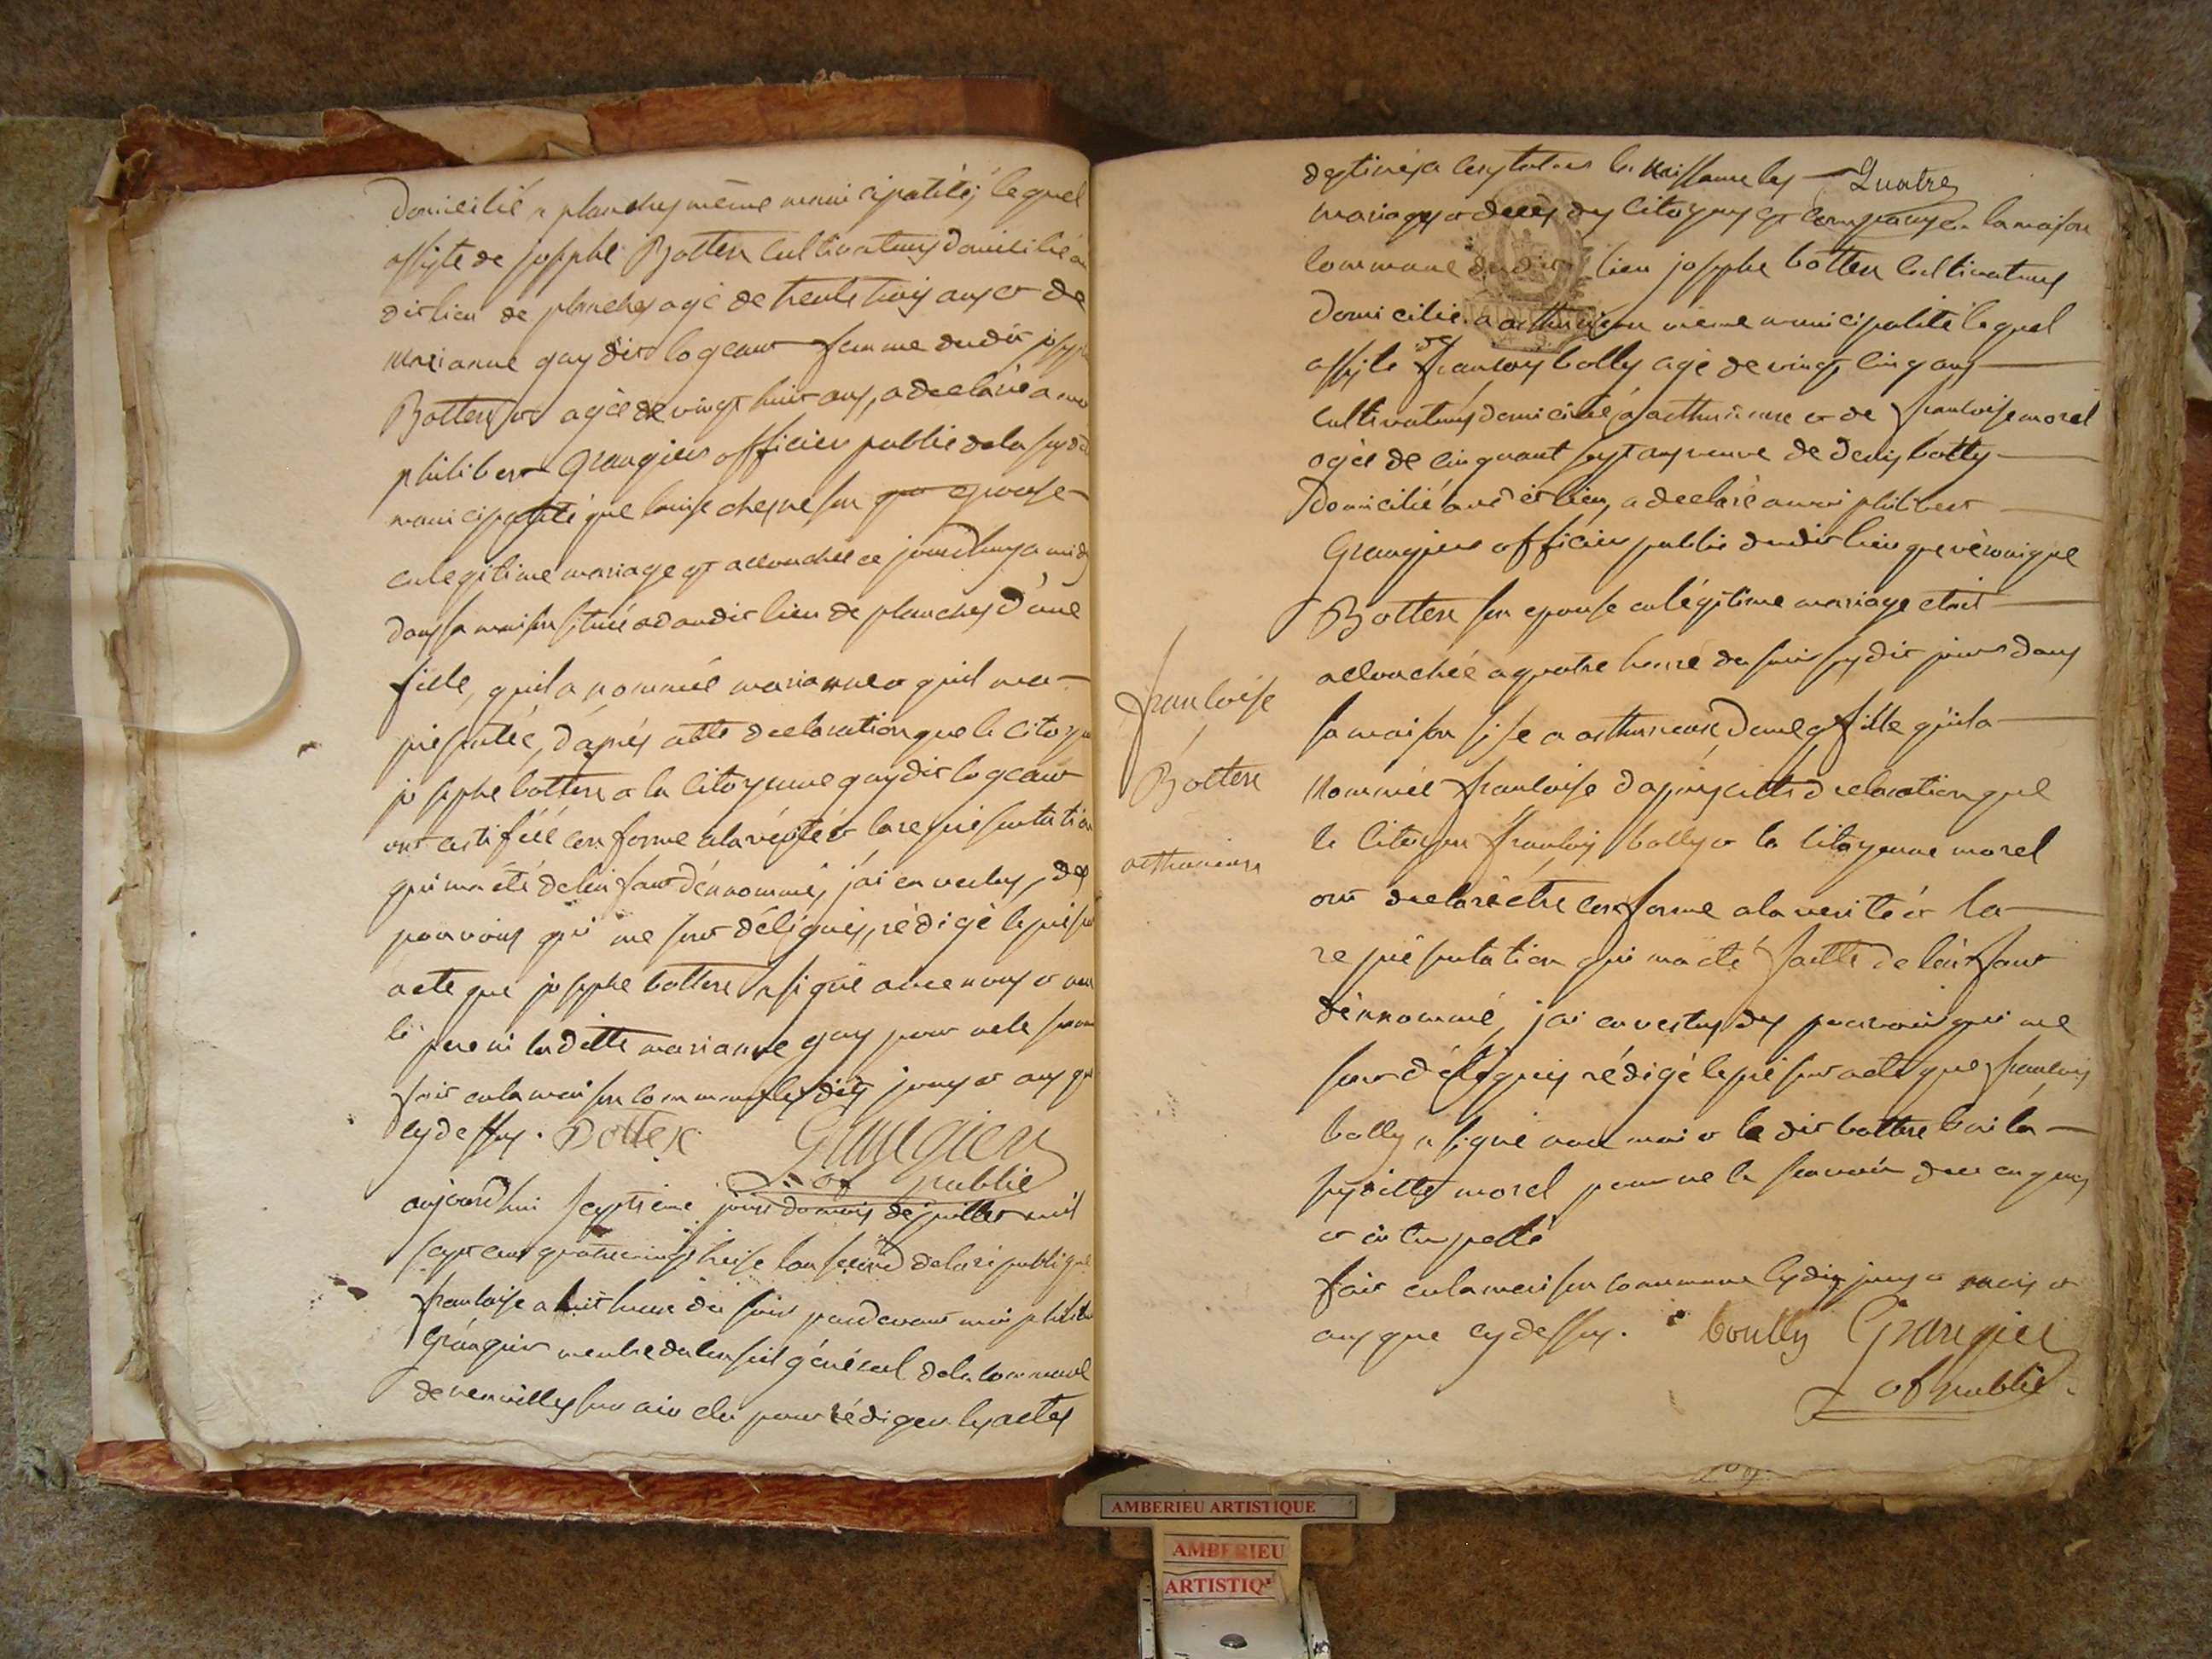 Domicilié a planches même municipalité, lequel
assiste de josephe Bottex cultivateurs domicilié au
dit lieu de planches agé de trente trois ans et de
marianne guy dit logeant femme dudit josephe
Bottex agée de vingt huit ans, a declaré a moi
philibert Grangier officier public de la susdite
municipalité que louise chesne son epouse
en legitime mariage est accouchée ce jourdhuy a midy
dans sa maison située audit lieu de planches d'une
fille, quil a nommée marianne et quil ma
présentée, d'après cette declaration que le citoyen
josephe bottex et la citoyenne guy dit logeant
ont certifiée conforme a la vérité et la representation
qui ma été de lenfant dénnommé, jai en vertus, des
pouvoirs qui me sont délégués, rédigé le présent
acte que josephe bottex a signé avec nous et non
le pere ni laditte marianne guy pour ne le savoir
fait en la maison commune les dits jours et ans que
cy dessus. Bottex Grangier
of public
aujourdhui septieme jour du mois de juillet mil
sept cent quatre vingt treise lan second de la republique
francoise a huit heure du soir pardevant moi philibert
Grangier membre du conseil général de la commune
de neuville sur ain elu pour rédiger les actes
destinés a constater les naissances les Quatre
mariages et deces des citoyens est comparu en la maison
commune dudit lieu josephe bottex cultivateurs
Domicilié a arthurieux même municipalité lequel
assisté de francois bolly agé de vingt cinq ans
cultivateurs domicilié a arthurieux et de francoise morel
agée de cinquant sept ans veuve de denis bolly
Domicilié audit lieu, a declaré a moi philibert
Grangier officier public dudit lieu que véronique
Bottex son epouse en légitime mariage etoit
accouchée a quatre heure du soir susdit jour dans
sa maison sise a arthurieux d'une fille quil a
Nommée francoise d'après cette declaration que
le citoyen francois bolly et la citoyenne morel
ont declaré etre conforme a la verité et la
representation qui ma été faitte de lenfant
dénnommé, jai en vertus des pouvoirs qui me
sont délégués rédigé le présent acte que francois
bolly a signé avec moi et le dit bottex ni la
susditte morel pour ne le scavoir de ce enquis
et interpellé
fait en la maison commune les dits jours et mois et
ans que cy dessus. boully Grangier
of public
francoise
Bottex
arthurieux
AMBERIEU ARTISTIQUE
AMBERIEU
ARTISTIQ